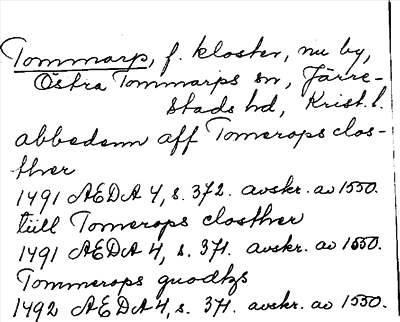 Tommarp, f. kloster, nu by,
Östra Tommarps sn, Järre-
stads hd, Krist. l.
abbedenn aff Tomerops clos-
ther
1491 AEDA 4, s. 372. avskr. av 1550.
tiill Tomerops closther
1491 AEDA 4, s. 371. avskr. av 1550.
Tommerops guodtzs
1492 AEDA 4, s. 371. avskr. av 1550.